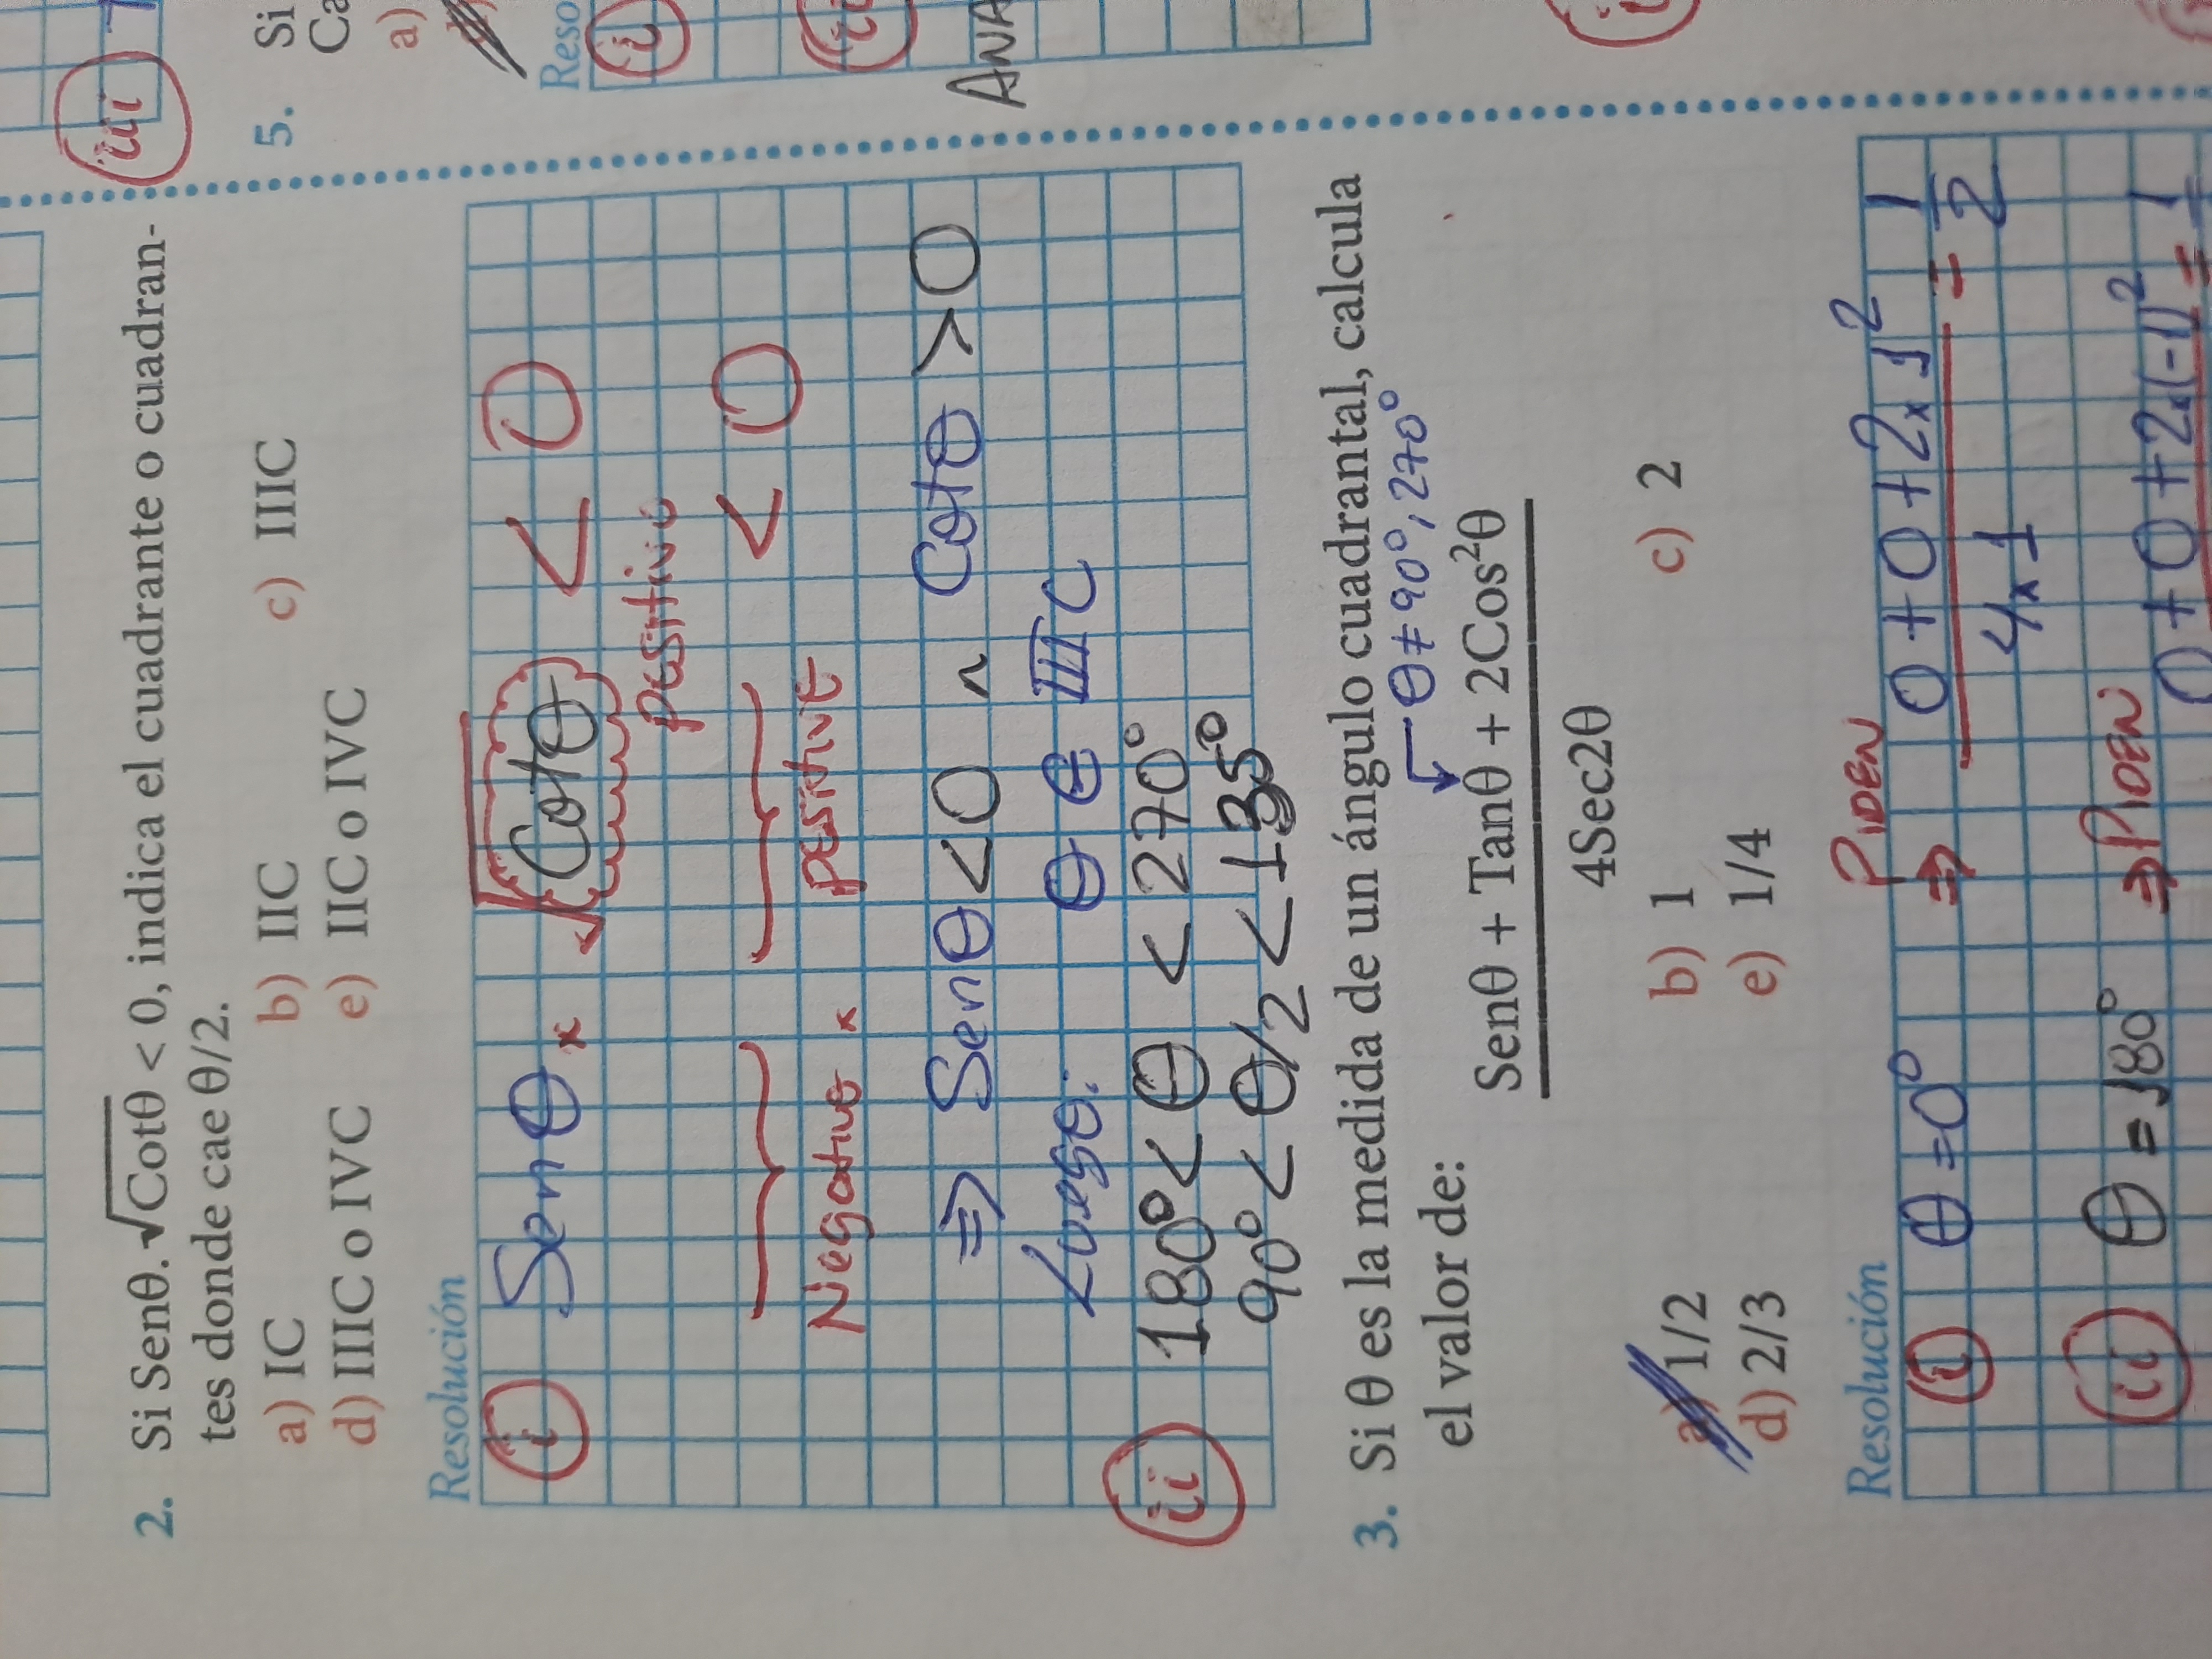 2. Si Senθ.√Cotθ < 0, indica el cuadrante o cuadran-
tes donde cae θ/2.
a) IC b) IIC c) IIIC
d) IIIC o IVC e) IIC o IVC
Resolución
i Senθ x √Cotθ < 0
positivo
< 0
Negativo x positivo
⇒ Senθ<0 ∧ Cotθ >0
Luego: θ ∈ III C
ii 180° < θ < 270°
90° < θ/2 < 135°
3. Si θ es la medida de un ángulo cuadrantal, calcula
θ≠90°, 270°
el valor de:
Senθ + Tanθ + 2Cos²θ
4Sec2θ
a) 1/2 b) 1 c) 2
d) 2/3 e) 1/4
Resolución
i θ = 0° PIDEN ⇒ 0+0+2x1² = 1
4x1 2
ii θ = 180° ⇒ PIDEN
0+0+2.(-1)² = 1
iii
5. Si
a)
Reso
i
ANA